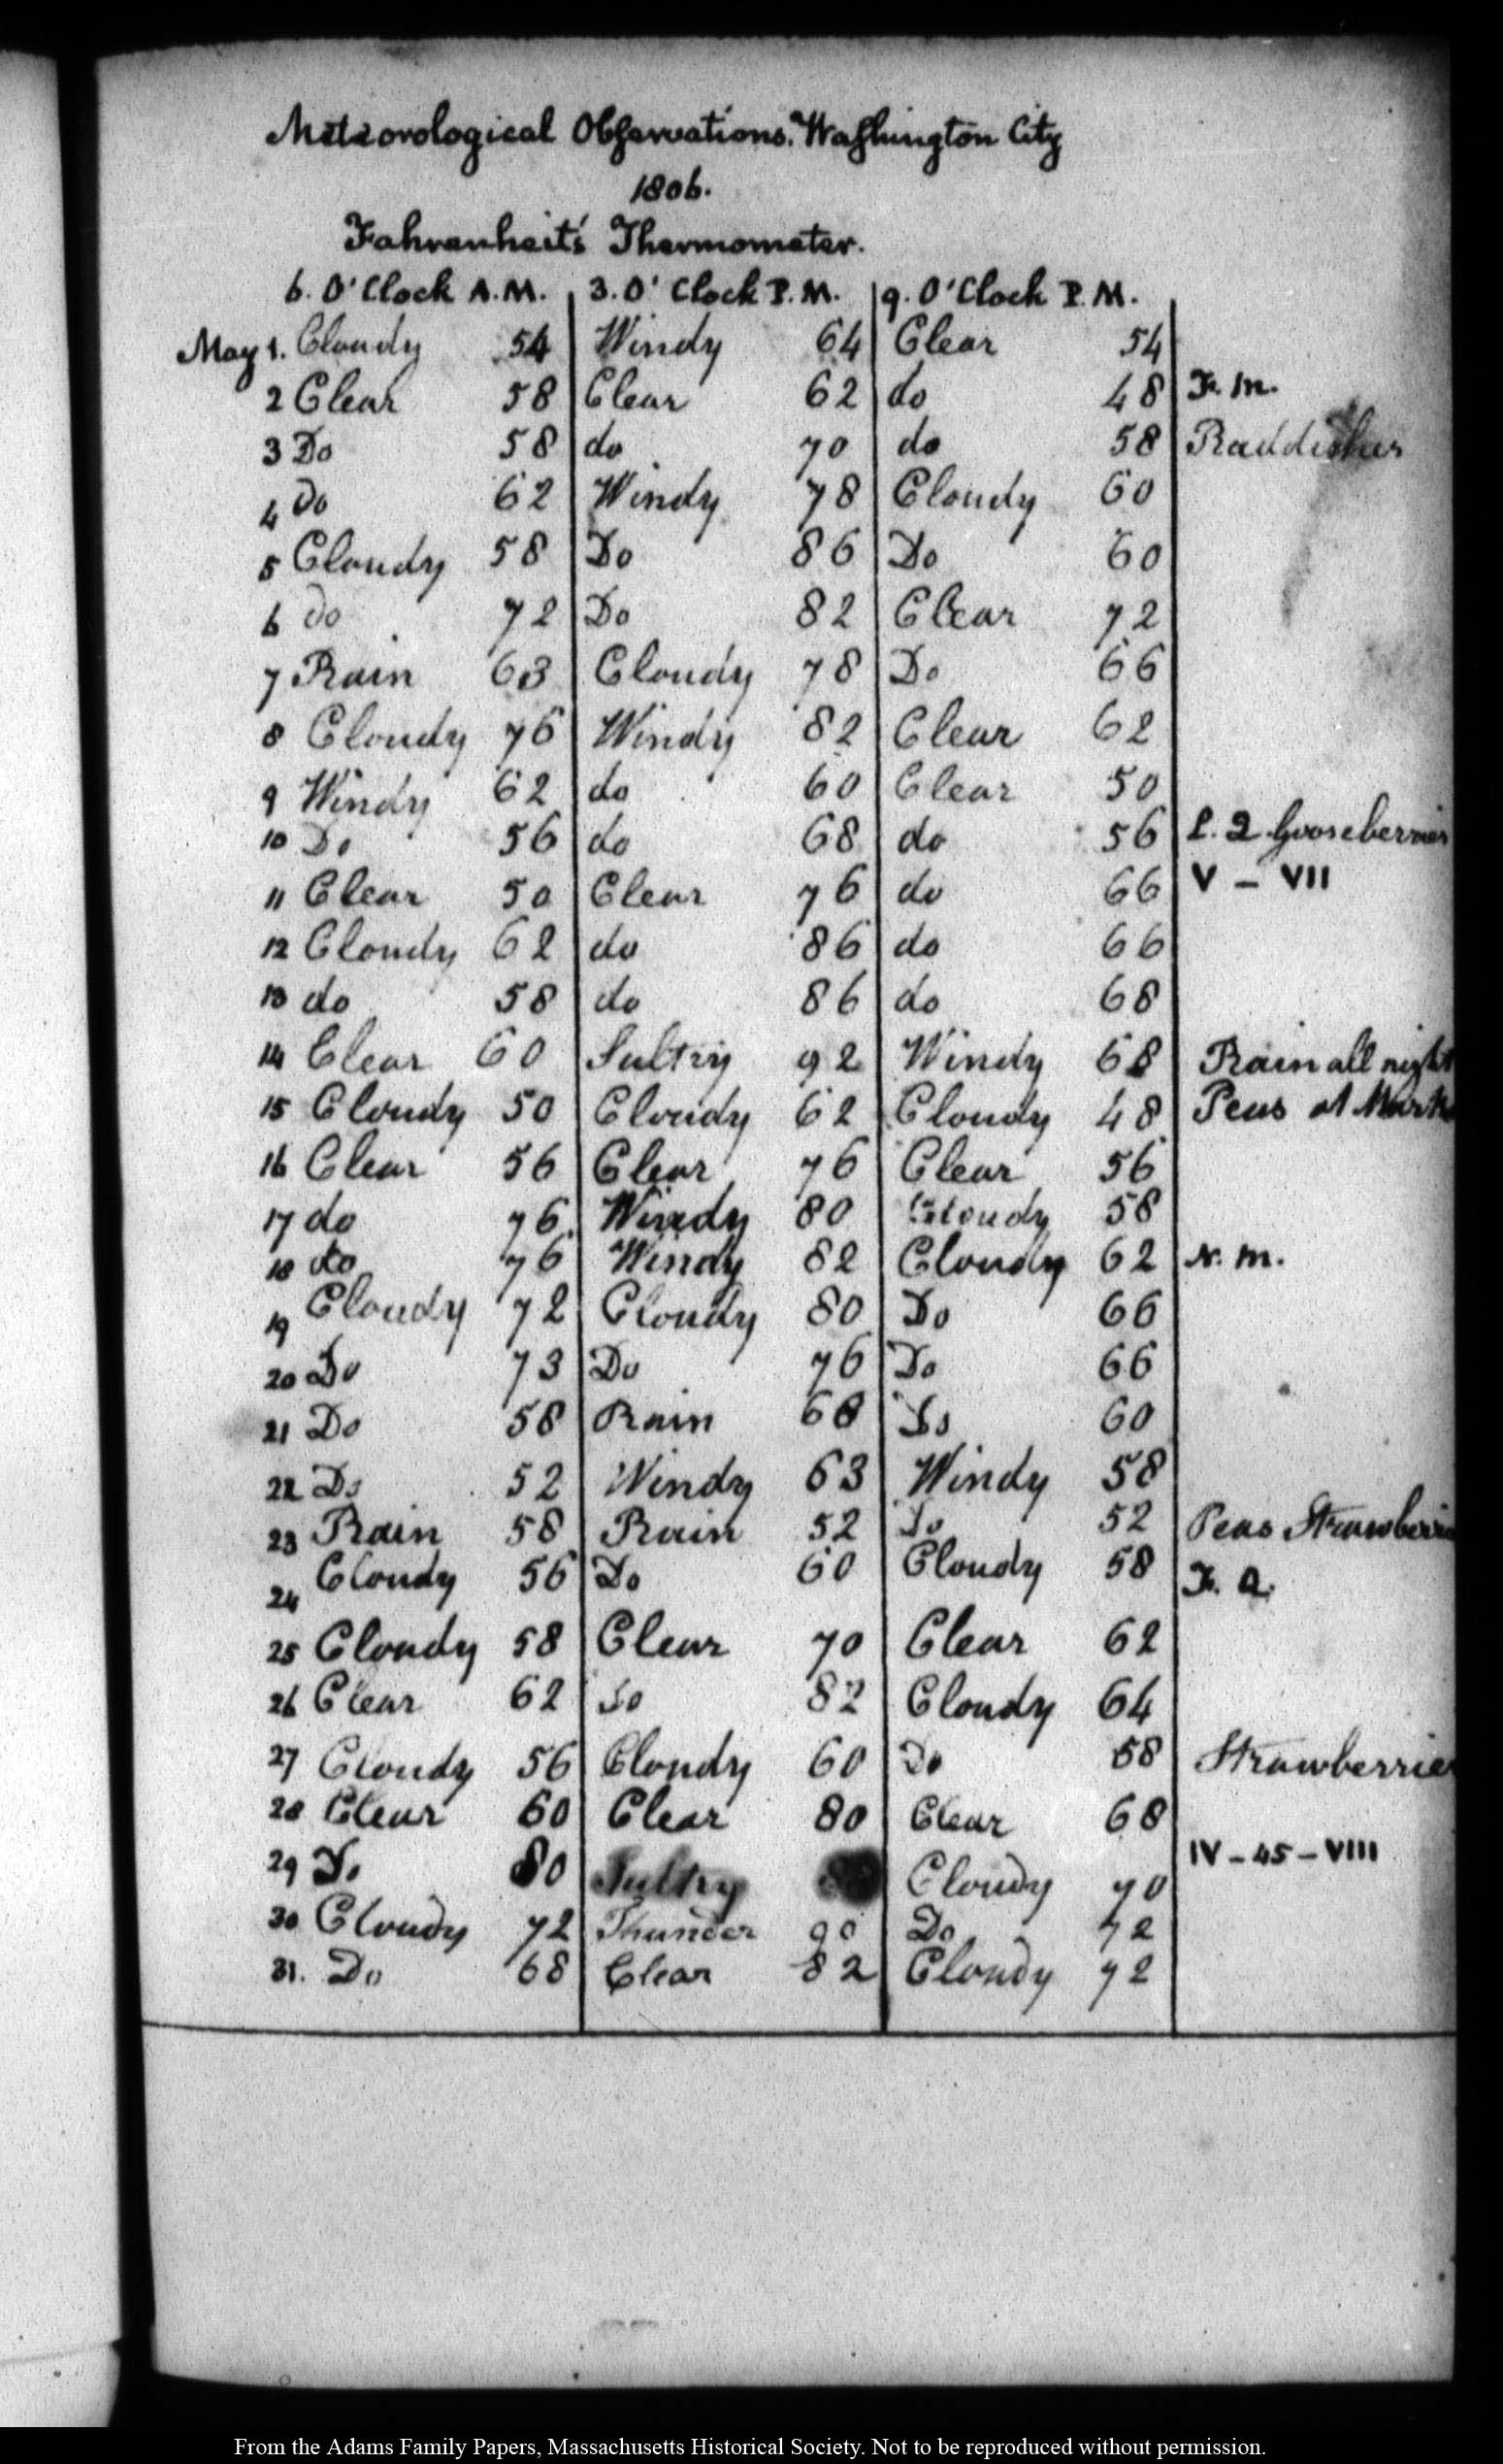 Meteorological Observations. Washington City
1806.
Fahrenheit's Thermometer.
6. O'Clock A.M. 3. O'Clock P.M. 9. O'Clock P.M.
May 1. Cloudy 54 Windy 64 Clear 54
2 Clear 58 Clear 62 do 48 F. M.
3 Do 58 do 70 do 58 Raddishes
4 Do 62 Windy 78 Cloudy 60
5 Cloudy 58 Do 86 Do 60
6 do 72 Do 82 Clear 72
7 Rain 63 Cloudy 78 Do 66
8 Cloudy 76 Windy 82 Clear 62
9 Windy 62 do 60 Clear 50
10 Do 56 do 68 do 56 L. Q Gooseberries
11 Clear 50 Clear 76 do 66 V – VII
12 Cloudy 62 do 86 do 66
13 do 58 do 86 do 68
14 Clear 60 Sultry 92 Windy 68 Rain all night
15 Cloudy 50 Cloudy 62 Cloudy 48 Peas at
16 Clear 56 Clear 76 Clear 56
17 do 76 Windy 80 Cloudy 58
18 do 76 Windy 82 Cloudy 62 N. M.
19 Cloudy 72 Cloudy 80 Do 66
20 Do 73 Do 76 Do 66
21 Do 58 Rain 68 Do 60
22 Do 52 Windy 63 Windy 58
23 Rain 58 Rain 52 Do 52 Peas Strawberrie
24 Cloudy 56 Do 60 Cloudy 58 F. Q.
25 Cloudy 58 Clear 70 Clear 62
26 Clear 62 Do 82 Cloudy 64
27 Cloudy 56 Cloudy 60 Do 58 Strawberries
28 Clear 60 Clear 80 Clear 68
29 Do 80 Sultry Cloudy 70 IV – 45 – VIII
30 Cloudy 72 Thunder 90 Do 72
31. Do 68 Clear 82 Cloudy 72
From the Adams Family Papers, Massachusetts Historical Society. Not to be reproduced without permission.